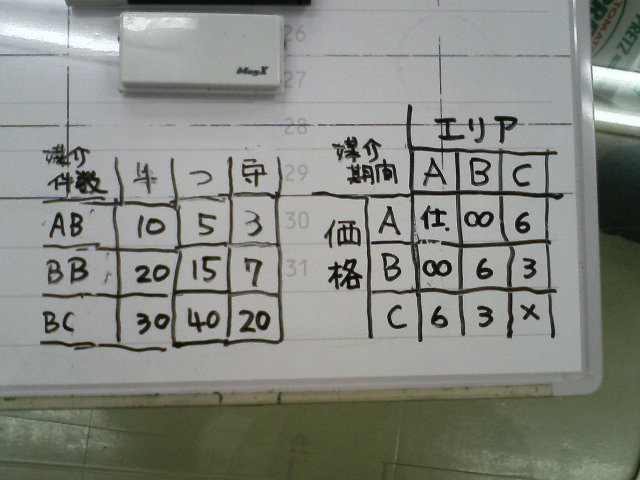 26
MagX
27
28
エリア
媒介 件数 牛 つ 守
29
媒介期間 A B C
AB 10 5 3
30
価格 A 仕 ∞ 6
BB 20 15 7
31
B ∞ 6 3
BC 30 40 20
C 6 3 ×
TOMATO
PRETZ